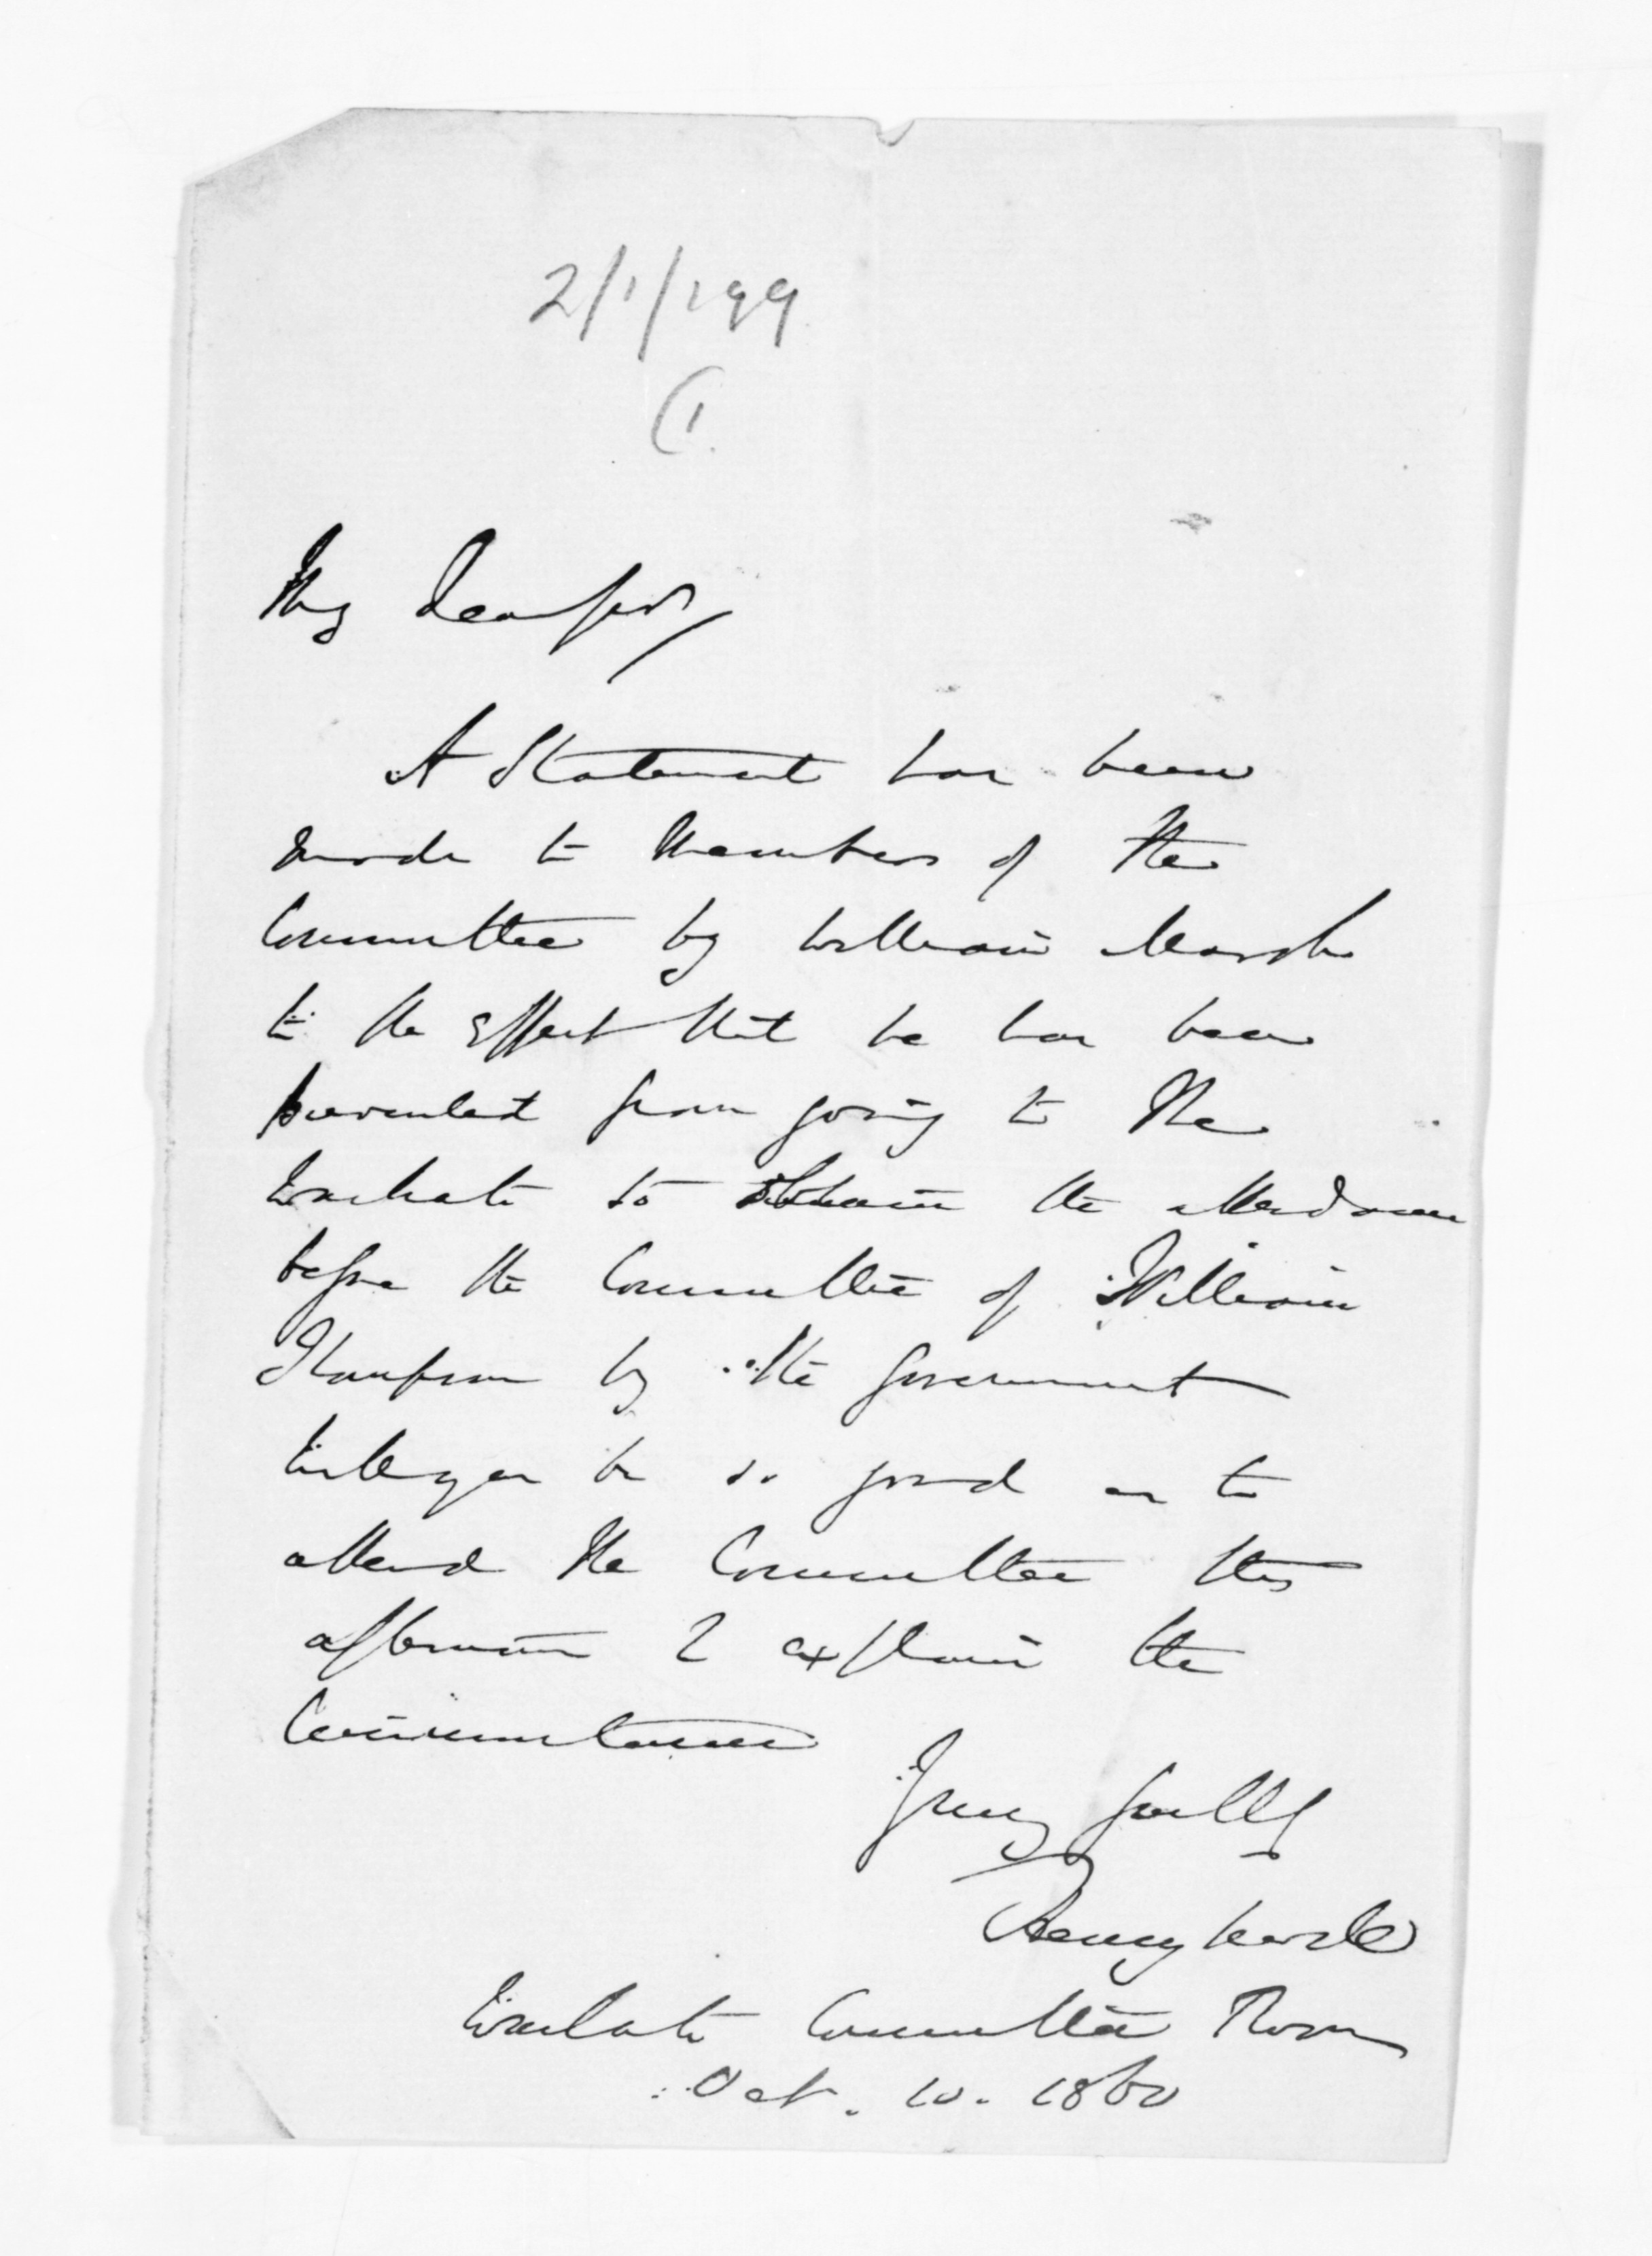 2/1/199
(1.
My dear Sir,
A Statement has been
made to Members of the
Committee by William Marsh
to the effect that he has been
prevented from going to the
Waikato to obtain the attendance
before the Committee of William
Thompson by the Government
Will you be so good as to
attend the Committee this
afternoon & explain the
Circumstances
Yours faithf
Henry
Waikato Committee Room
Oct. 10. 1860